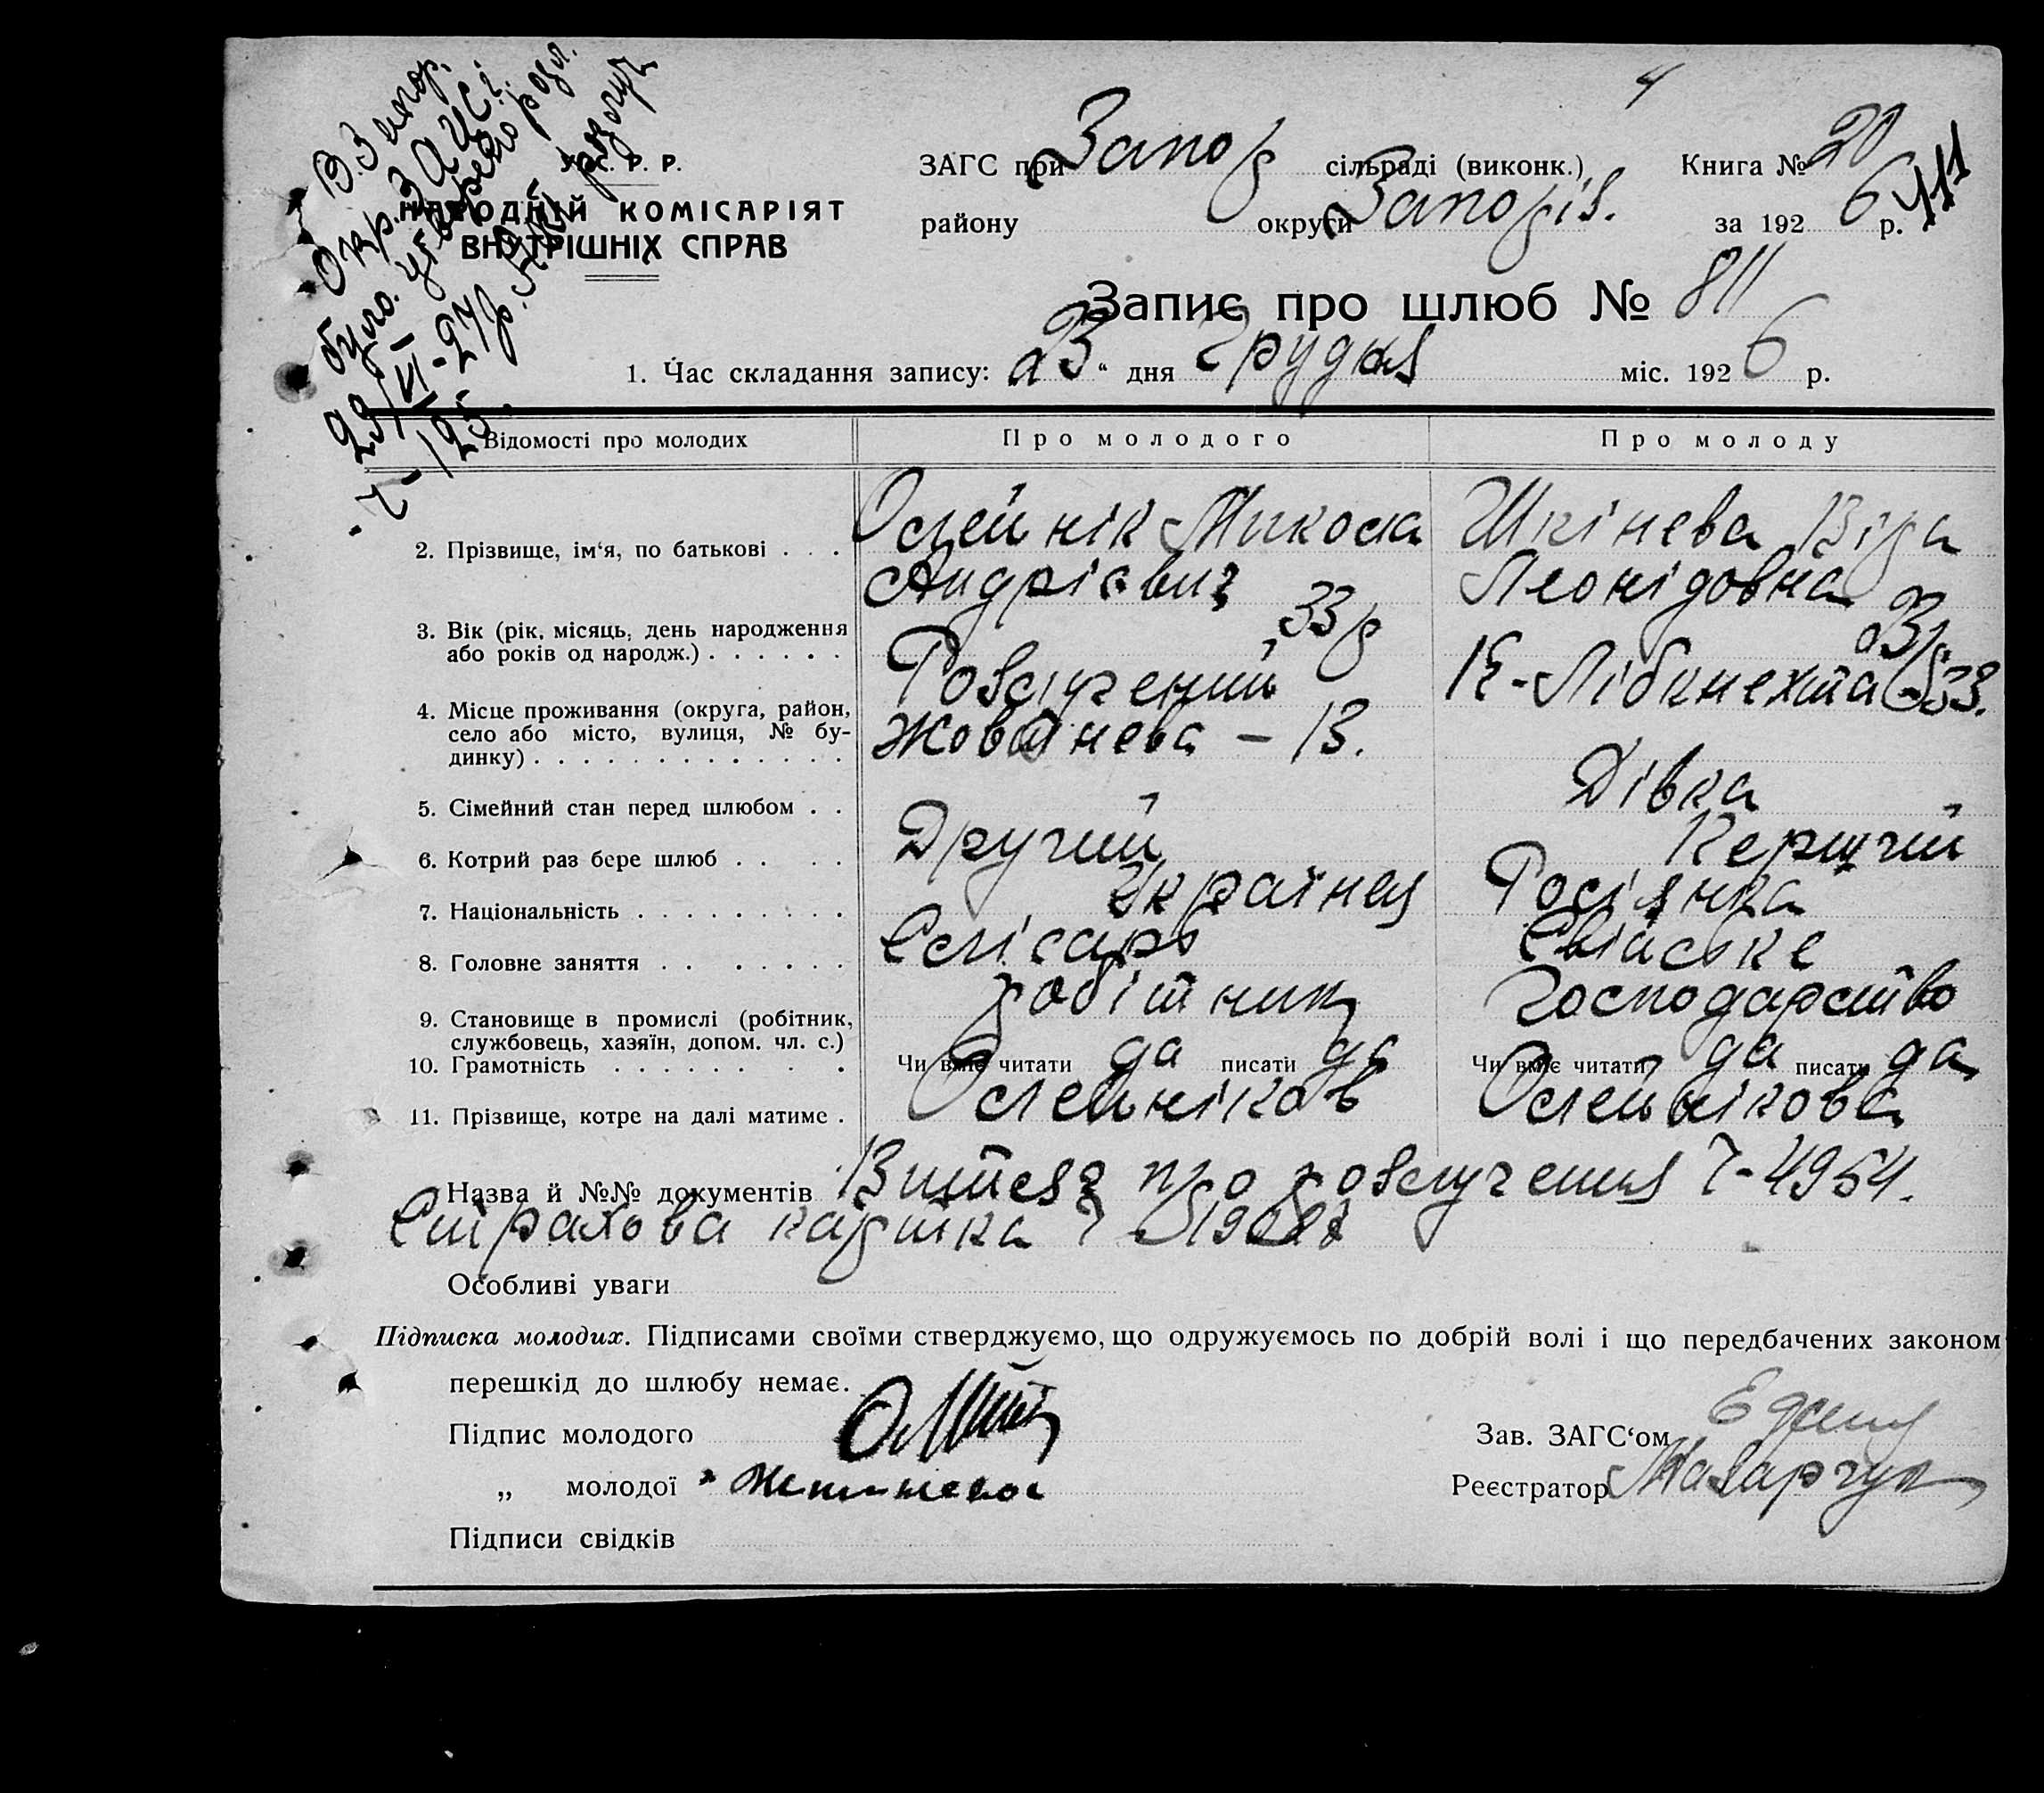 В. Запор.
Окр. ЗАГСі
було утворено розл.
29/VI-27р.
ч-/25.
У. С. Р. Р.
НАРОДНІЙ КОМІСАРІЯТ
ВНУТРІШНІХ СПРАВ
4
ЗАГС при Запор сільраді (виконк.) Книга № 20
району округи Запоріз. за 1926 р. 411
Запис про шлюб № 811
1. Час складання запису: 23 “ дня Грудня міс. 1926 р.
Відомості про молодих Про молодого Про молоду
2. Прізвище, ім‘я, по батькові . . . Олейнік Микола Шкінева Віра
Андрієвич Леонідовна
3. Вік (рік, місяць, день народження 33 р 23 р.
або років од народж.) . . . . . . Розлучений К-Лібкнехта 33.
4. Місце проживання (округа, район, Жовтнева – 13.
село або місто, вулиця, № бу-
динку) . . . . . . . . . . . . .
5. Сімейний стан перед шлюбом . . Дівка
6. Котрий раз бере шлюб . . . . Другий Перший
7. Національність . . . . . . . . . Українець Росіянка
8. Головне заняття . . . . . . . . Слісарь Свійське
9. Становище в промислі (робітник, робітник Господарство
службовець, хазяїн, допом. чл. с.)
10. Грамотність . . . . . . . . . Чи вміє читати да писати да Чи вміє читати да писати да
11. Прізвище, котре на далі матиме . Олейніков Олейнікова
Назва й №№ документів Витяг про розлучення ч-4954.
Страхова картка ч
Особливі уваги
Підписка молодих. Підписами своїми стверджуємо, що одружуємось по добрій волі і що передбачених законом
перешкід до шлюбу немає.
Підпис молодого Зав. ЗАГС‘ом
„ молодої Реєстратор Назарчук
Підписи свідків